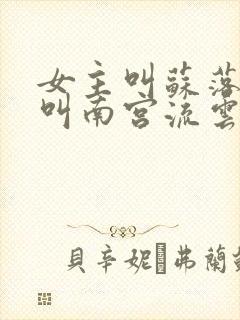 女主叫蘇落
叫南宮流雲
貝辛妮 弗蘭